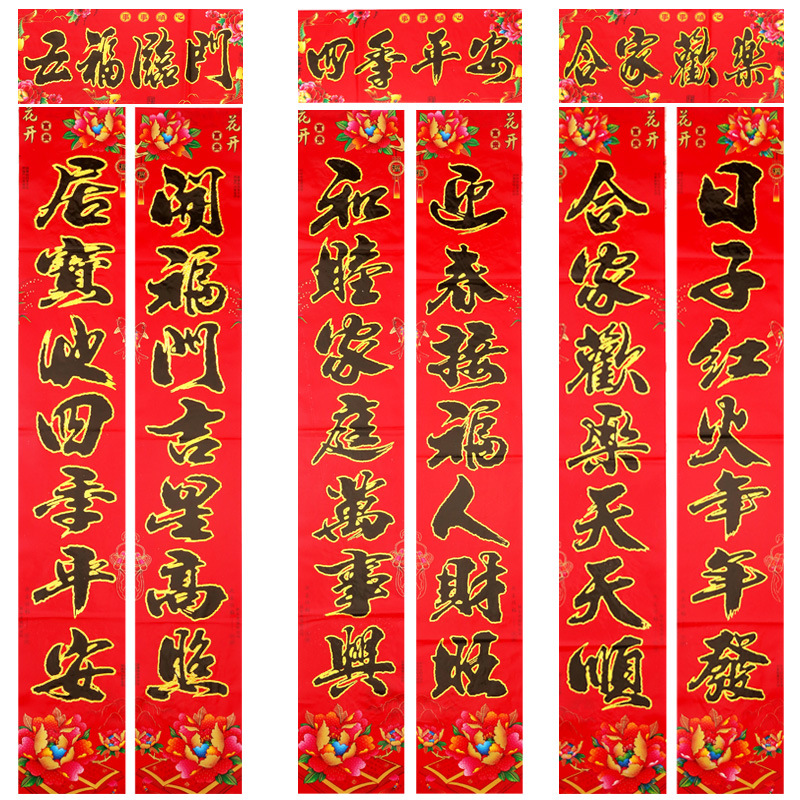 五福臨門
花开
居寶地四季平安
花开
開福門吉星高照
四季平安
花开
和睦家庭萬事興
花开
迎春接福人財旺
合家歡樂
花开
合家歡樂天天順
花开
日子红火年年發